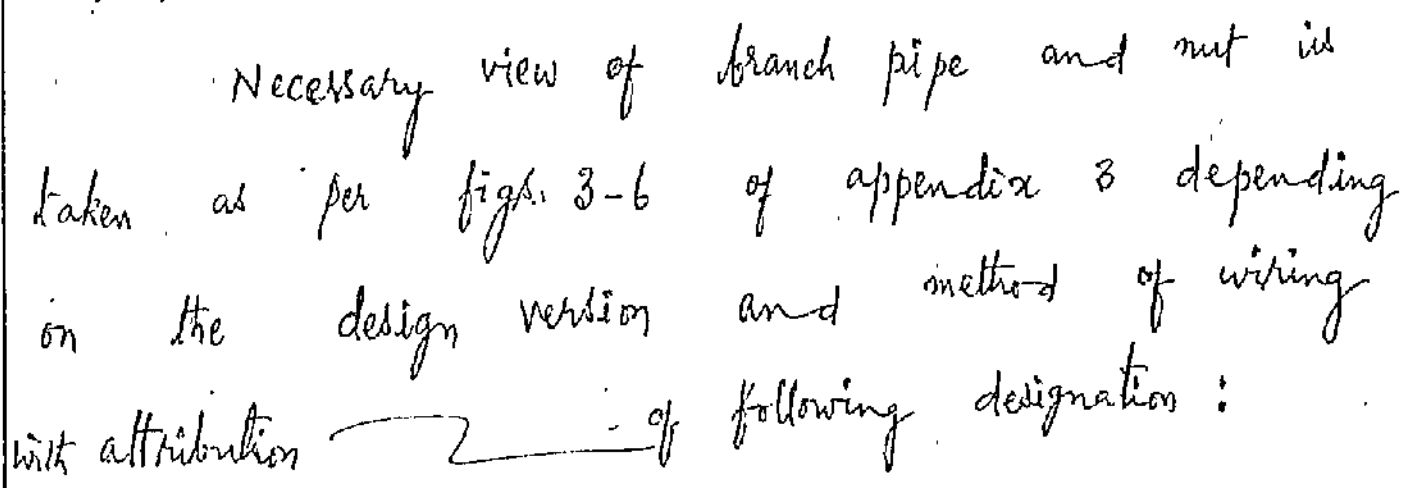 Necessary view of branch pipe and nut is
taken as per figs. 3-6 of appendix 3 depending
on the design version and method of wiring
with attribution of following designation :